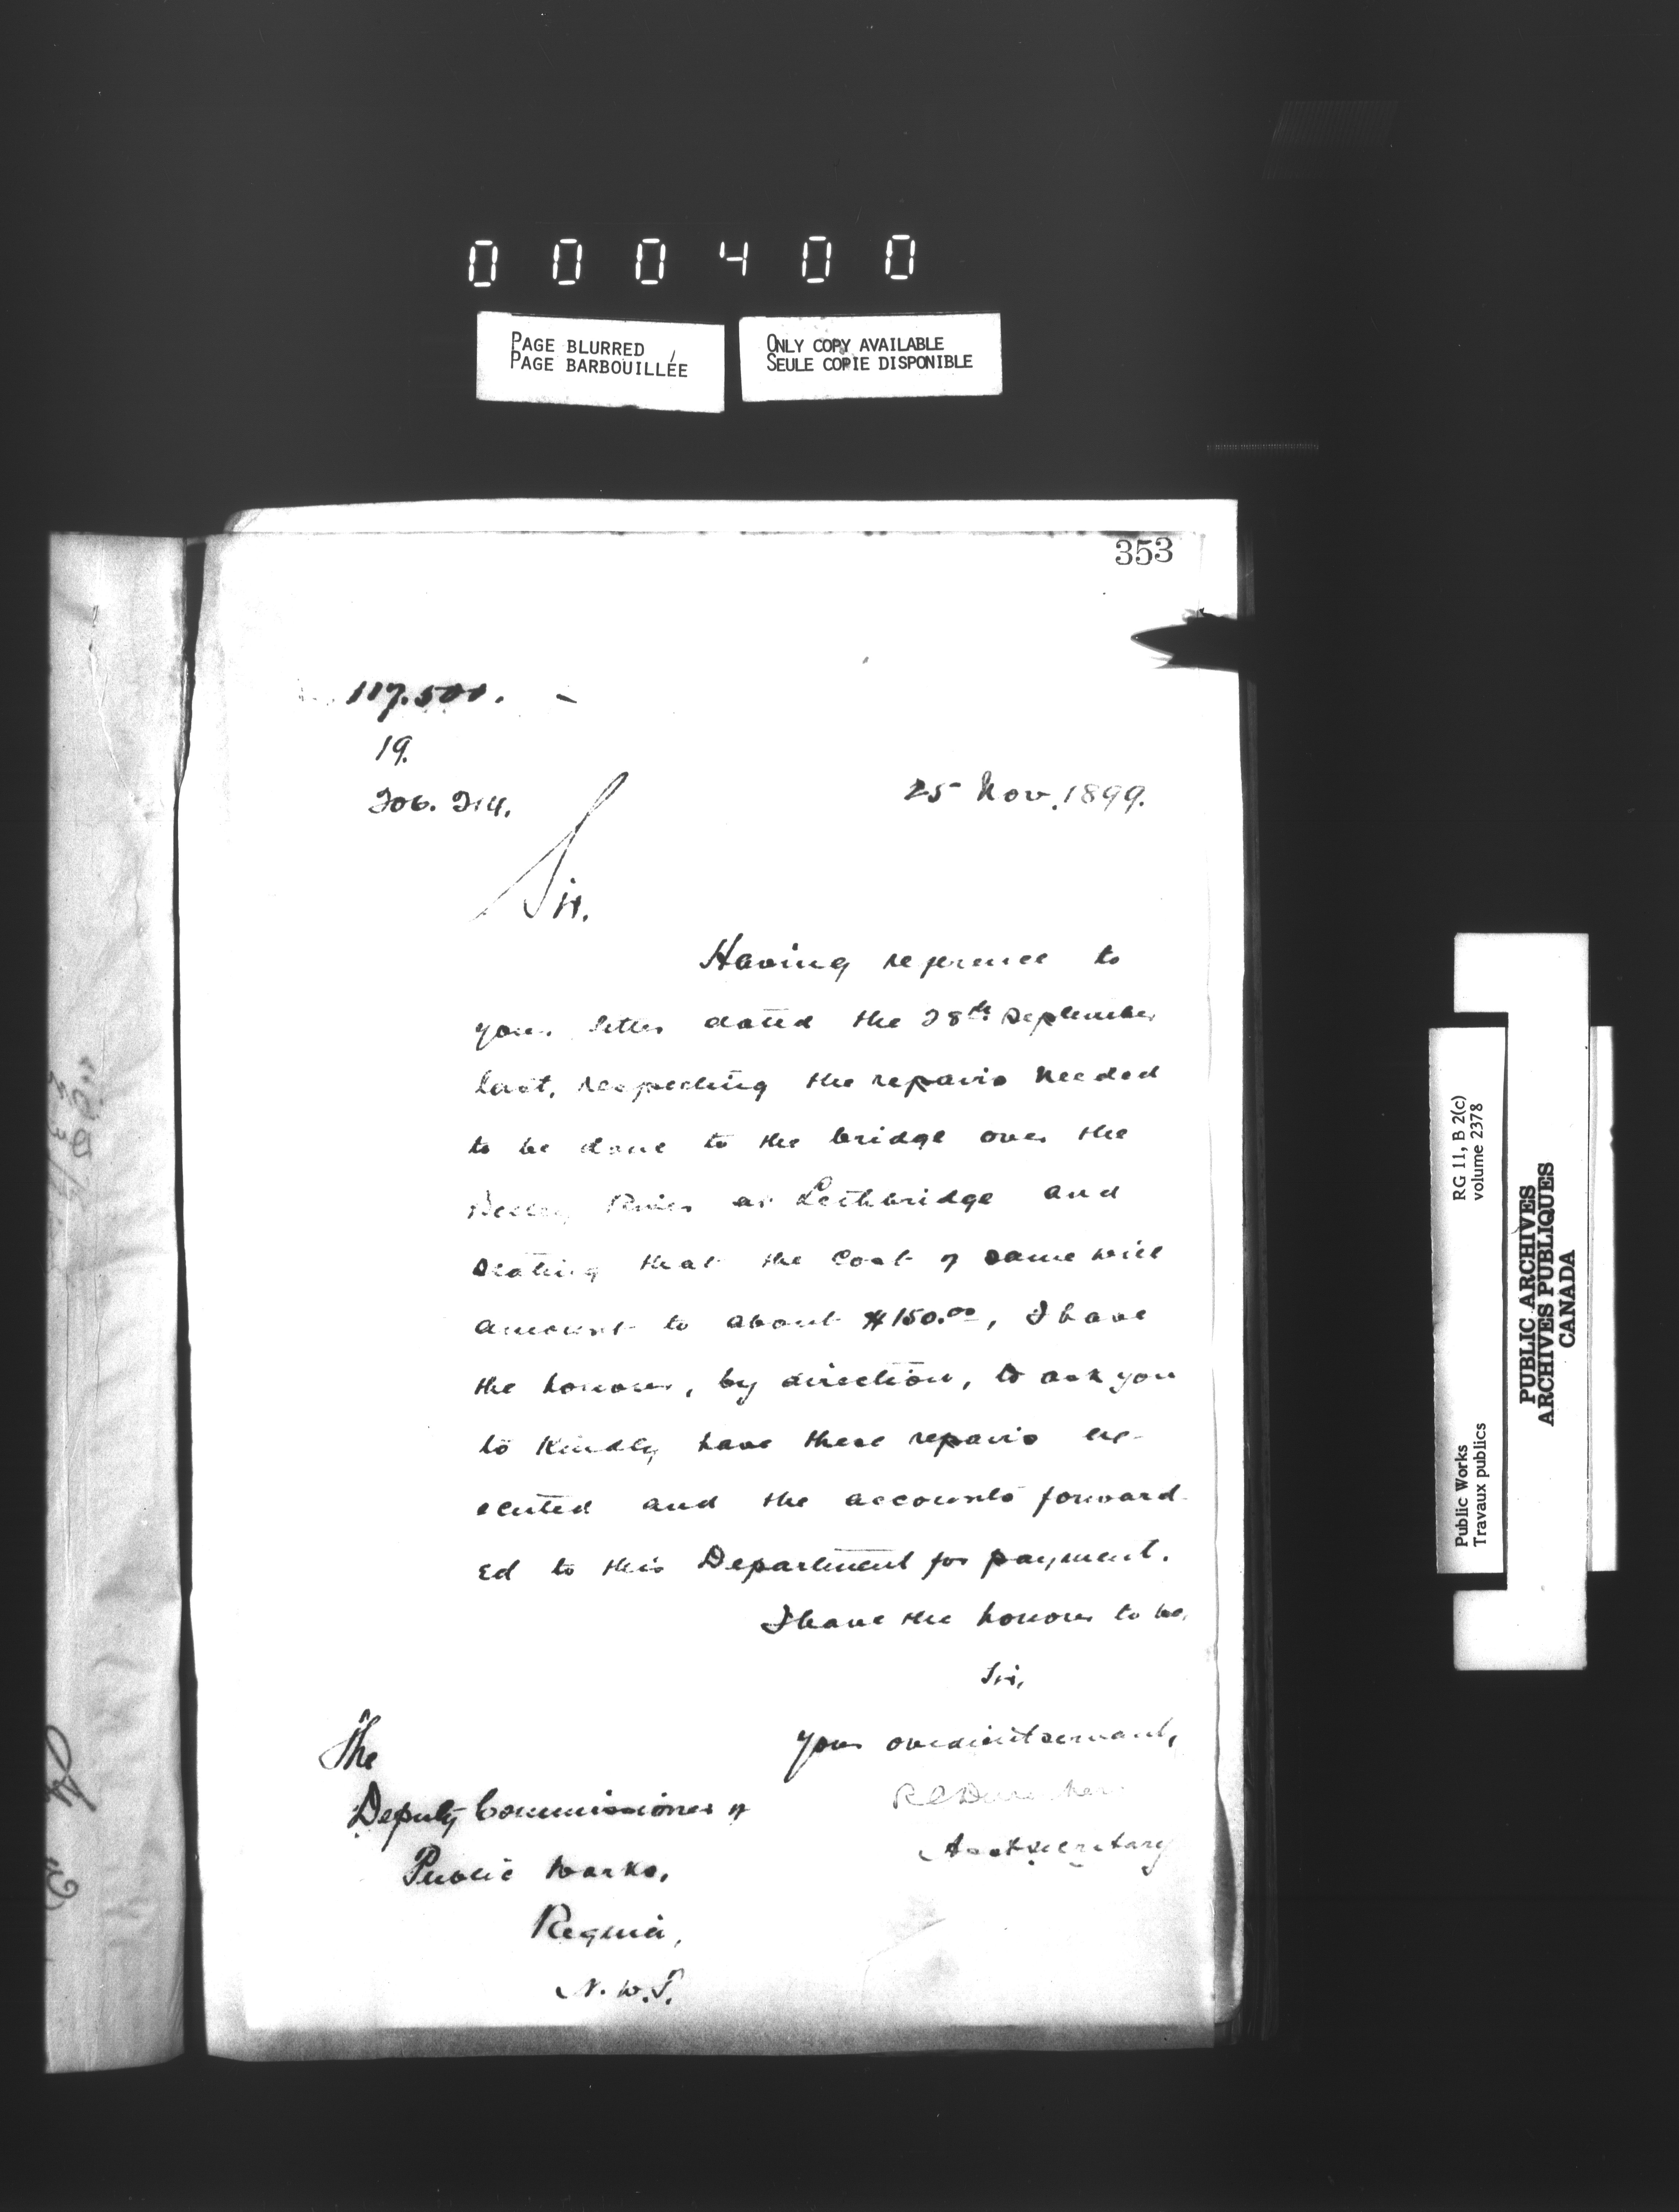 000400
PAGE BLURRED
PAGE BARBOUILLÉE
ONLY COPY AVAILABLE
SEULE COPIE DISPONIBLE
353
117.500.
19.
206. 214.
25 Nov. 1899.
Sir.
Having reference to
your letter dated the 28th September
last, respecting the repairs needed
to be done to the bridge over the
Belly River at Lethbridge and
stating that the cost of same will
amount to about $150.00, I have
the honour, by direction, to ask you
to kindly have these repairs ex-
ecuted and the accounts forward-
ed to this Department for payment.
I have the honour to be,
Sir,
Your obedient servant,
Asst Secretary
The
Deputy Commissioner of
Public Works,
Regina,
N.W.T.
RG 11, B 2(c)
volume 2378
Public Works
Travaux publics
PUBLIC ARCHIVES
ARCHIVES PUBLIQUES
CANADA